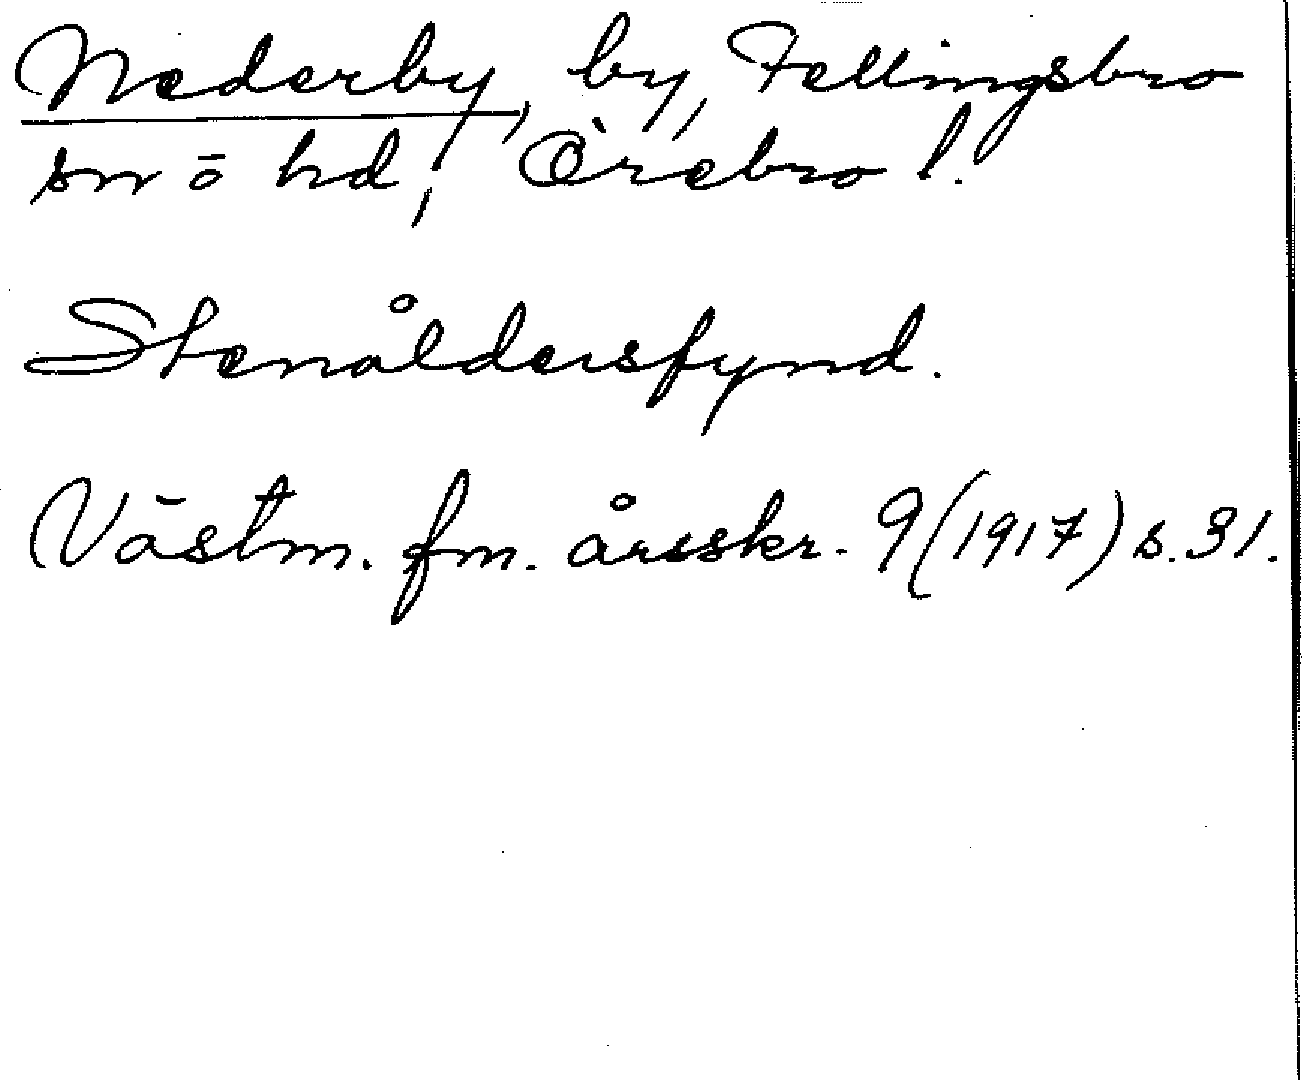 Nederby, by, Fellingsbro
sn ö hd, Örebro l.
Stenåldersfynd.
Västm. fm. årsskr. 9 (1917) s. 31.